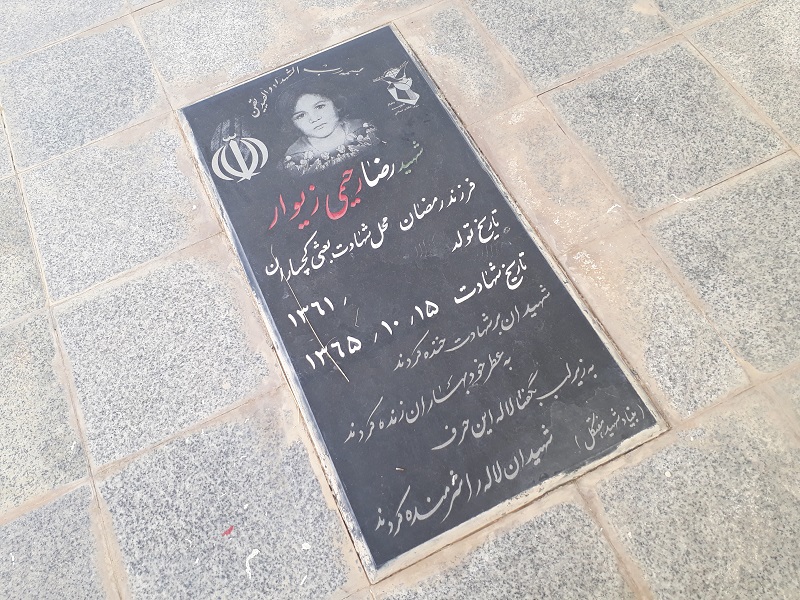 شهید رضا رحیمی زیوار
فرزند رمضان محل شهادت بعثی گچساران
تاریخ تولد ۱۳۶۱/ /
تاریخ شهادت ۱۳۶۵/۱۰/۱۵
شهیدان بر شهادت خنده کردند
به عطر خود بهاران زنده کردند
به زیر لب بگفتا لاله این حرف
شهیدان لاله را شرمنده کردند
(بنیاد شهید هفتکل)